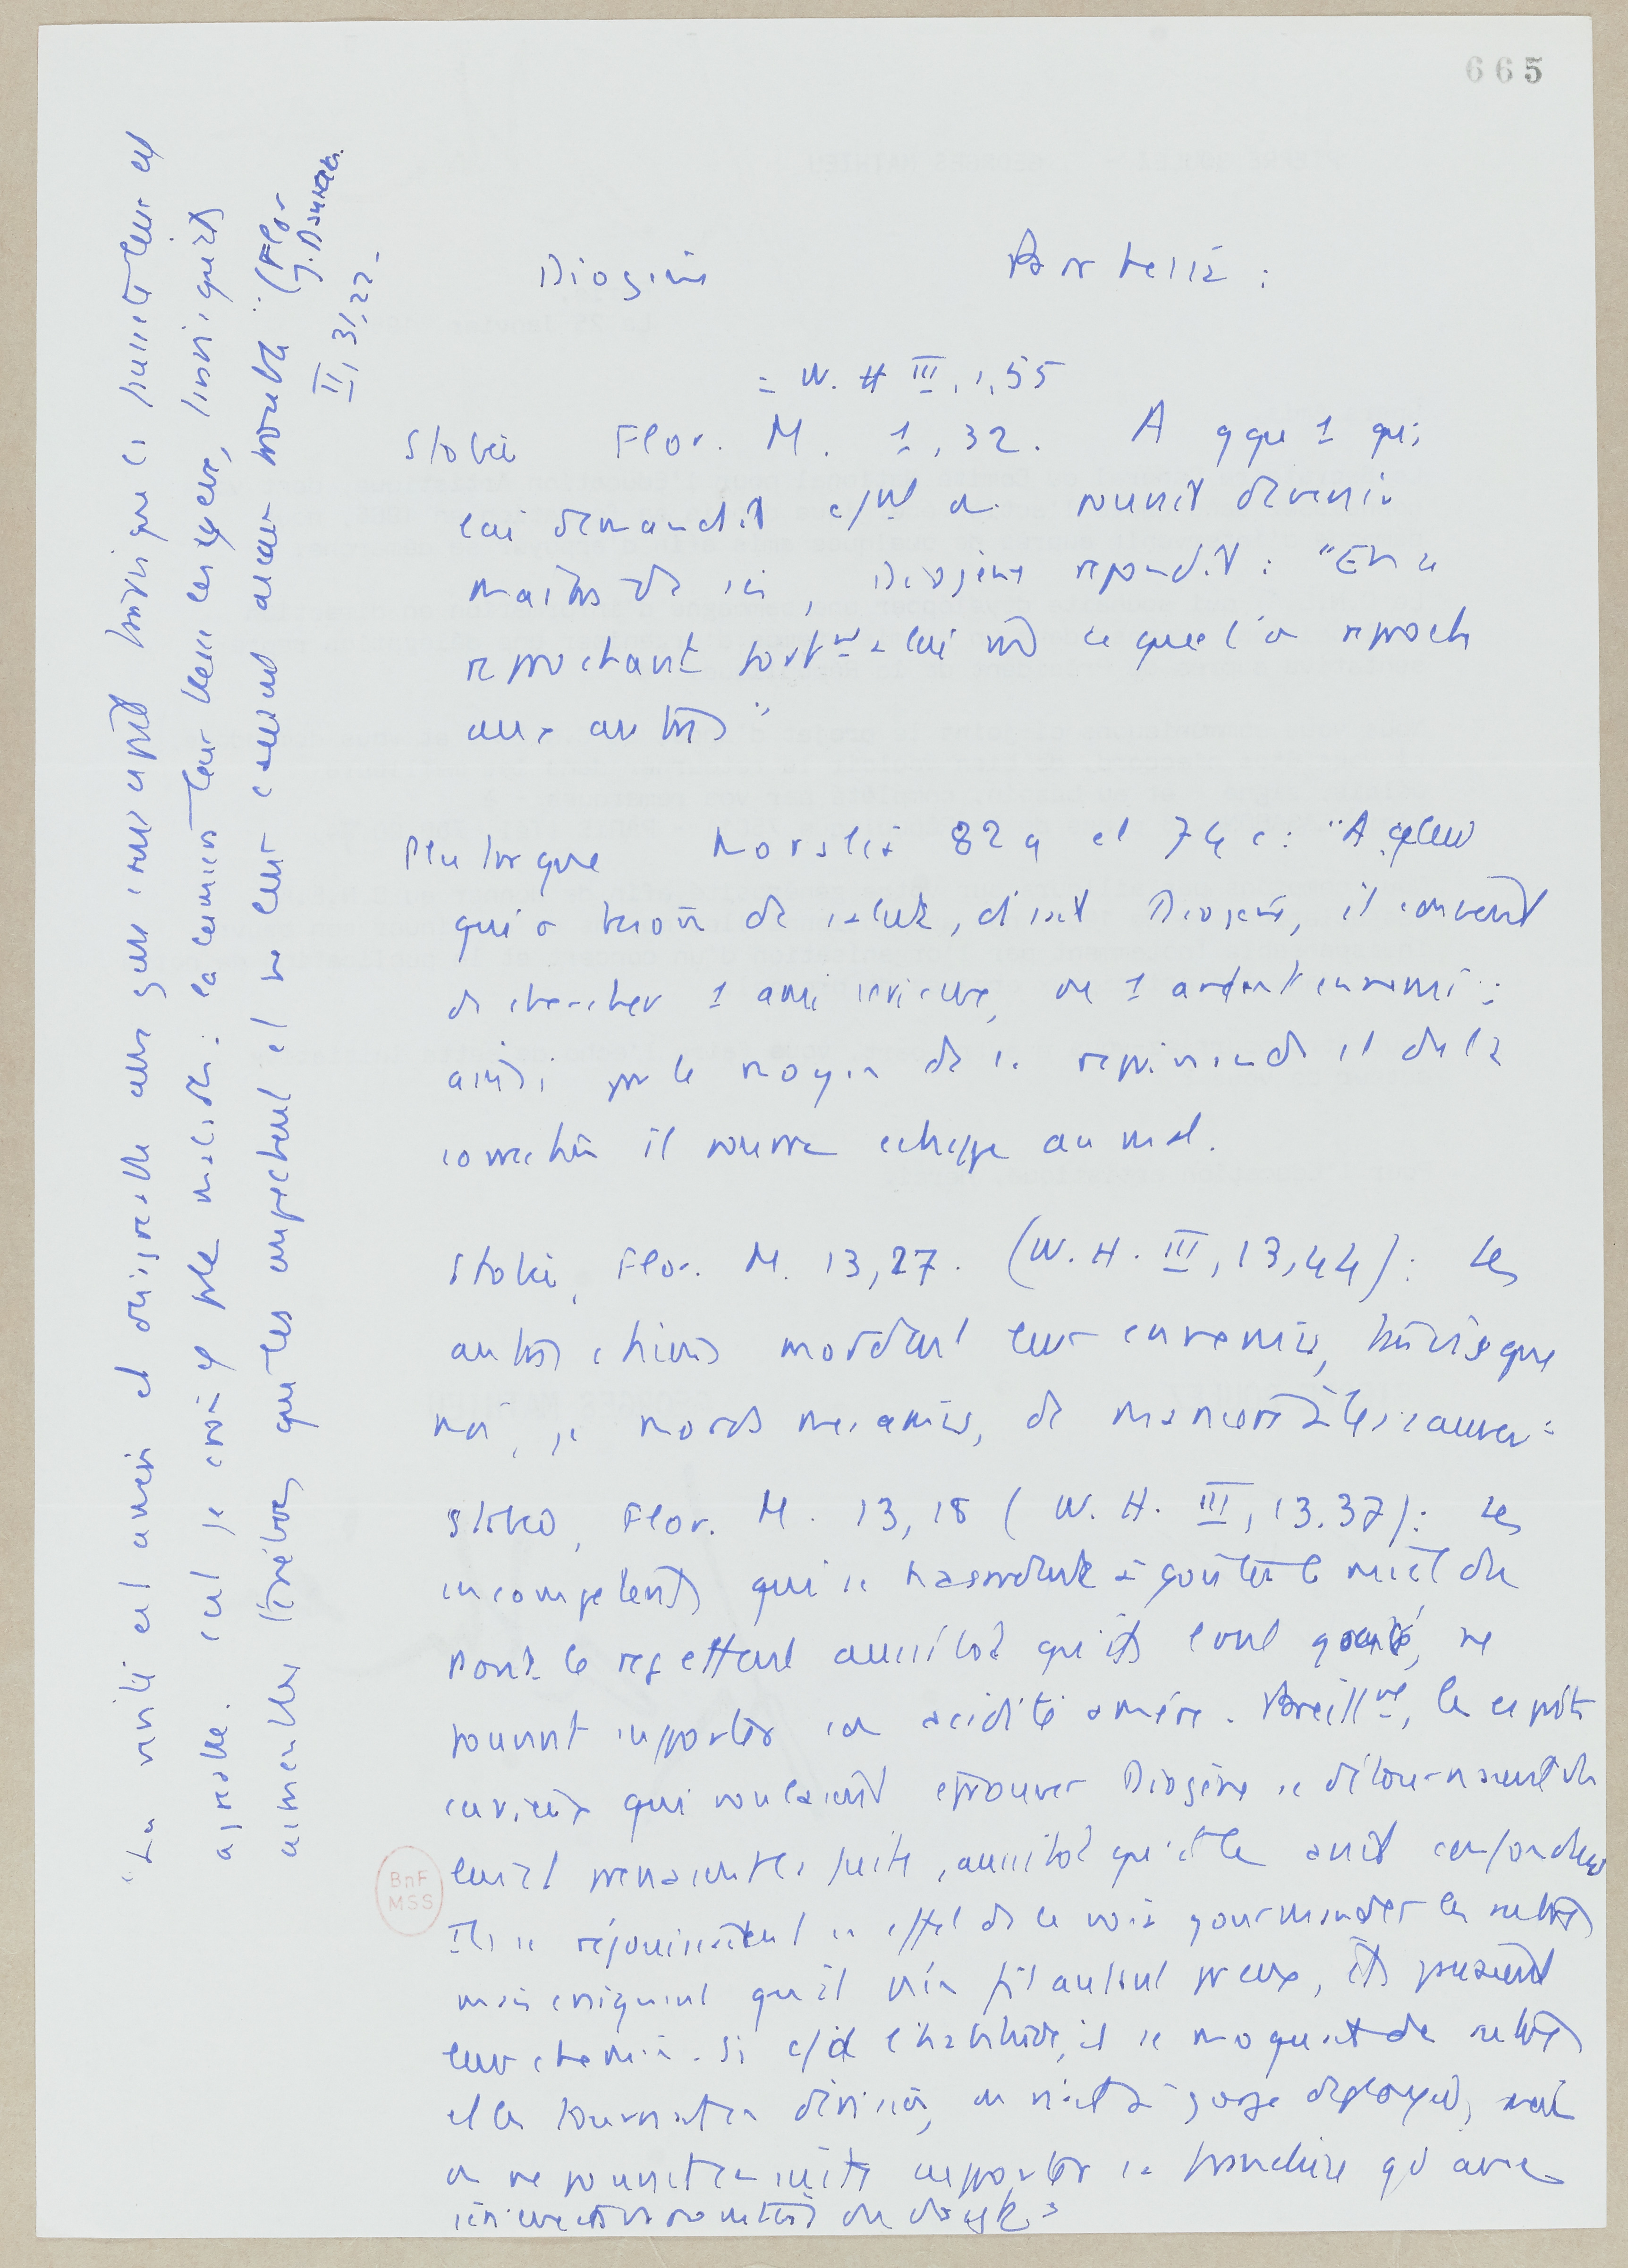 665
Diogène Parrêsia :
= W. H III, 1, 55
Stobée Flor. M. 1, 32. A qque 1 qui
lui demandait c/mt on pouvait devenir
maître de soi, Diogène répondit : "En se
reprochant fortmt à lui même ce que l'on reproche
aux autres"
Plutarque Moralia 82a et 74c : "A celui
qui a besoin de salut, disait Diogène, il convient
de chercher 1 ami sérieux, ou 1 ardent ennemi :
ainsi par le moyen de la réprimande et de la
correction il pourra échapper au mal.
Stobée, Flor. M. 13,27. (W. H. III, 13,44) : Les
autres chiens mordent leurs ennemis, tandis que
moi, je mords mes amis, de manière à les sauver.
Stobée, Flor. M. 13,18 (W. H. III, 13.37) : Les
incompétents qui se hasardent à goûter le miel du
Pont le rejettent aussitôt qu'ils l'ont goûté, ne
pouvant supporter son acidité amère. Pareillmt, les esprits
curieux qui voulaient éprouver Diogène se détournaient de
lui et prenaient la fuite, aussitôt qu'il les avait confondus
Ils se réjouissaient en effet de le voir gourmander les autres
mais craignant qu'il n'en fit autant pour eux, ils passaient
leur chemin. Si c/d l'habitude, il se moquait des autres
et les tournait en dérision, on riait à gorge déployée, mais
on ne pouvait ensuite supporter sa franchise qd avec
sérieux
"La vérité est amère et désagréable aux gens sans esprit tandis que la fausseté leur est
agréable. C'est je crois comme pour les malades : la lumière leur blesse les yeux, tandis que les
ténèbres qui les empêchent de voir ne leur causent aucun trouble" (Flor
J. Damasc.
II, 31, 22.
BnF
MSS